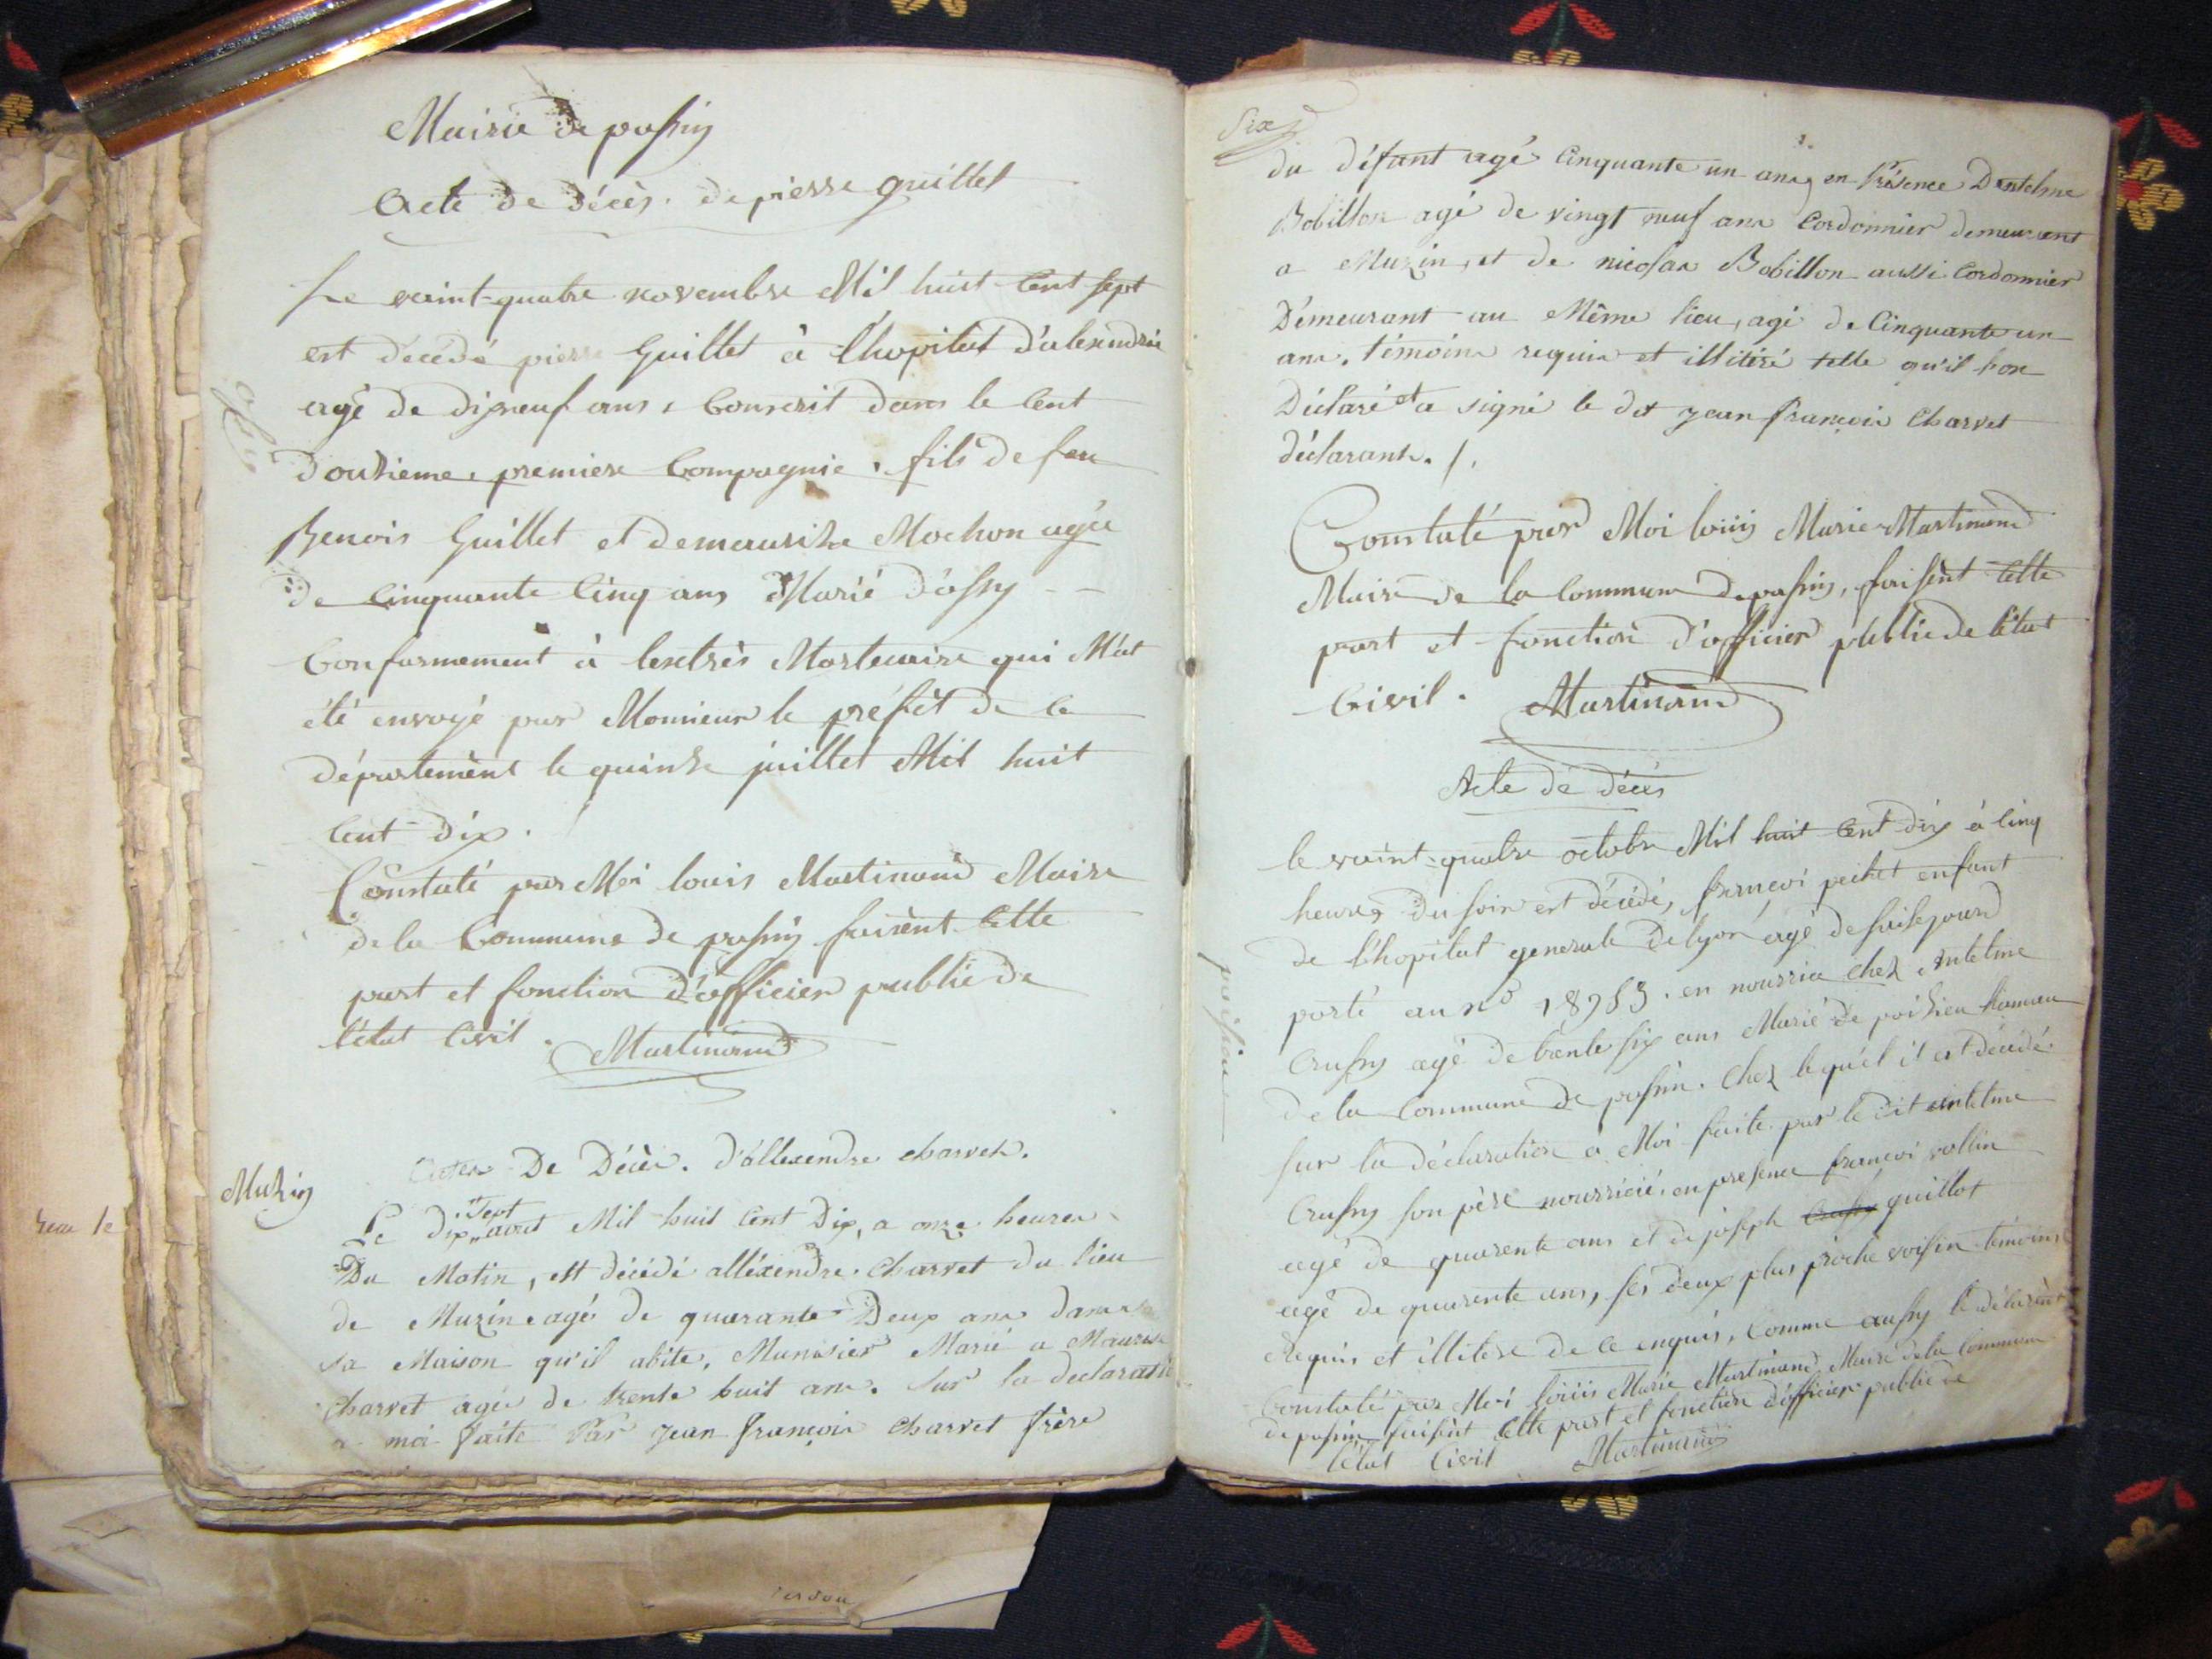 Mairie de passin
Acte de décès. de pierre guillet
Le veint-quatre novembre Mil huit Cent sept
est décédé pierre Guillet à l'hopitat d'alexandrie
agé de dixneuf ans, Conscrit dans le Cent
douzieme, premiere Compagnie, fils de feu
Benois Guillet et demaurise Mochon agée
de Cinquante Cinq ans Marié d'ossy - -
Conformement à lextrès Mortuaire qui M'at
été envoyé par Monsieur le préfèt de ce
département le quinze juillet Mil huit
Cent dix.
Constaté par Moi louis Martinand Maire
de la Commune de passin faisènt Cette
part et fonction d'officier public de
l'état Civil. Martinand
Muzin
Actes De Décès. d'allexendre charvet.
Le dix "sept aout Mil huit Cent Dix, a onze heures
Du Matin, est décédé alléxendre Charvet du lieu
de Muzin agé de quarante Deux ans dans
sa Maison qu'il abite, Munisier Marié a Maurise
Charvet agée de trente huit ans. Sur la declaratio
a moi faite Par Jean françois Charvet frère
du défunt agé Cinquante un ans, en Présence Dantelme
Bobillon agé de vingt neuf ans Cordonnier demeurant
a Muzin, et de nicolas Bobillon aussi Cordonnier
Démeurant au Même lieu, agé de Cinquante un
ans. témoins requis et illitéré telle qu'il hon
Déclaré et a signé le dit jean françois Charvet
déclarant. /.
Constaté par Moi louis Marie Martinand
Maire de la Commune de passin, faisènt Cette
part et fonction d'officier public de l'état
Civil. Martinand
Acte de décès
le veint-quatre octobre Mil huit Cent dix à Cinq
heures du soir est décédé, françoi pechet enfant
de l'hopitat generale de lyon agé de seise jours
porté au n° 18953. en nourrice chez Antelme
Crussy agé de trente six ans Marié de poizieu hameau
de la Commune de passin. Chez lequel il est décédé
sur la déclaration à Moi faite par le dit antelme
Crussy son père nourricié, en presence françoi rollin
agé de quarente ans et de joseph Crussy guillot
agé de quarente ans, ses deux plus proche voisin témoins
Requis et illitere de ce enquis, comme aussy le déclarènt
Constaté par Moi louis Marie Martinand Maire de la Commune
de passin faisènt Cette part et fonction d'officier public de
l'état Civil Martinand